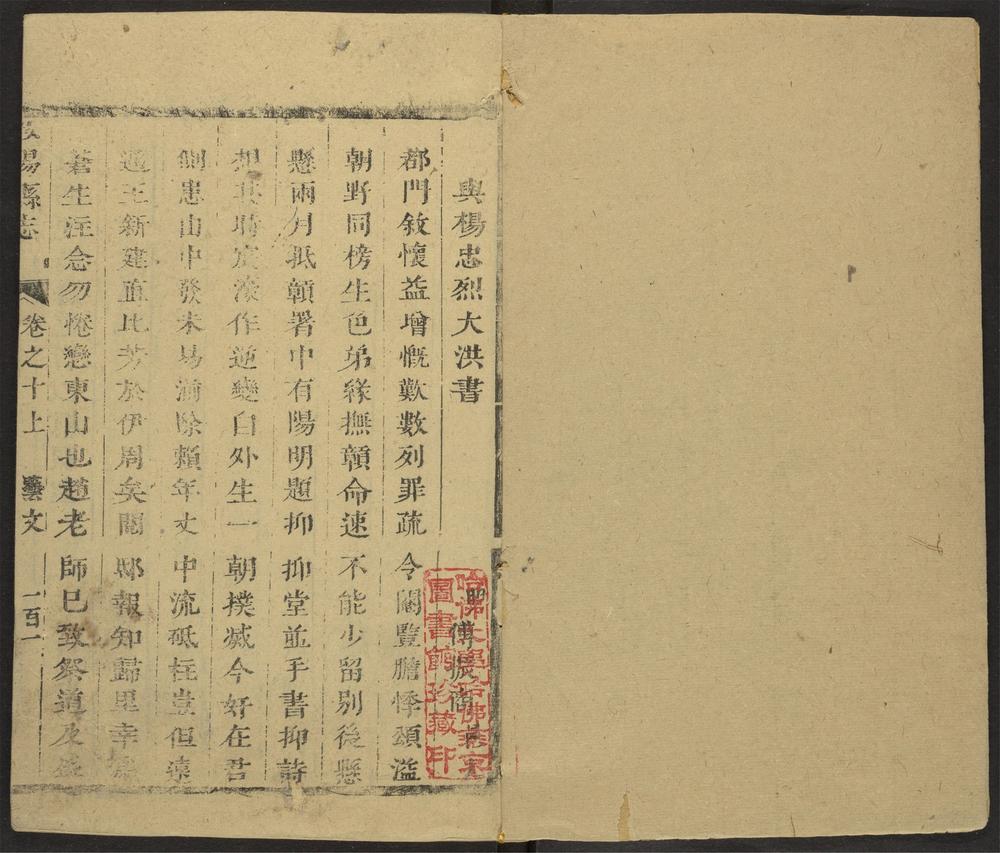 與楊忠烈大洪書
傅振商
都門敘懷益增慨歎數列罪疏令閹豎膽悸頌溢
朝野同榜生色弟緣撫贛命速不能少留别後懸
懸兩月抵贛署中有陽明題抑抑堂並手書抑詩
想其時宸濠作逆變自外生一朝撲滅今好在君
側患山中發未易消除賴年丈中流砥柱豈但遠
過王新建直比芳於伊周矣閱邸報知歸里幸為
蒼生注念勿惓戀東山也趙老師已致祭道及
陽縣志
卷之十上
藝文
一百一
哈佛大學哈佛燕京
圖書館珍藏印